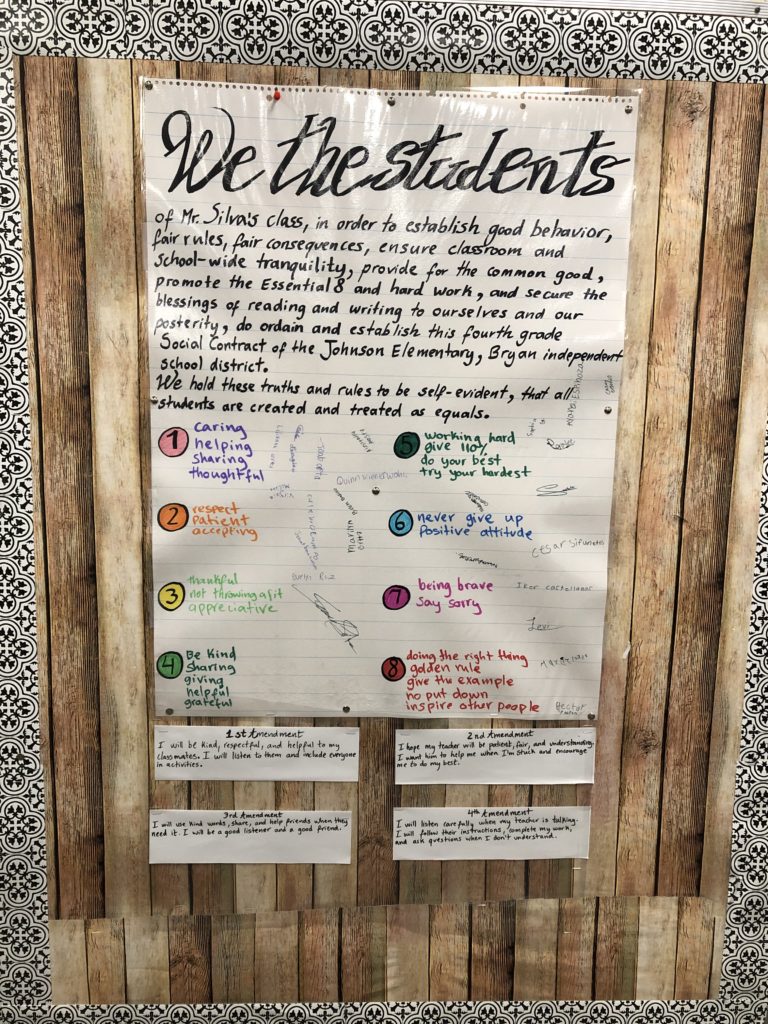 We the students
of Mr. Silva's class, in order to establish good behavior,
fair rules, fair consequences, ensure classroom and
school-wide tranquility, provide for the common good,
promote the Essential 8 and hard work, and secure the
blessings of reading and writing to ourselves and our
posterity, do ordain and establish this fourth grade
Social Contract of the Johnson Elementary, Bryan independent
school district.
We hold these truths and rules to be self-evident, that all
students are created and treated as equals.
1
caring
helping
sharing
thoughtful
2
respect
Patient
accepting
3
thankful
not throwing a fit
appreciative
4
Be Kind
sharing
giving
helpful
grateful
5
working hard
give 110%
do your best
try your hardest
6
never give up
positive attitude
7
being brave
say sorry
8
doing the right thing
golden rule
give the example
no put down
inspire other people
Quinn
Marilin
Ortiz
Evelyn Ruiz
Maria Espinoza
Cesar Sifuentes
Iker Castellanos
Levi
Hector
1st Amendment
I will be kind, respectful, and helpful to my
classmates. I will listen to them and include everyone
in activities.
2nd Amendment
I hope my teacher will be patient, fair, and understanding.
I want him to help me when I'm stuck and encourage
me to do my best.
3rd Amendment
I will use kind words, share, and help friends when they
need it. I will be a good listener and a good friend.
4th Amendment
I will listen carefully when my teacher is talking.
I will follow their instructions, complete my work,
and ask questions when I don't understand.